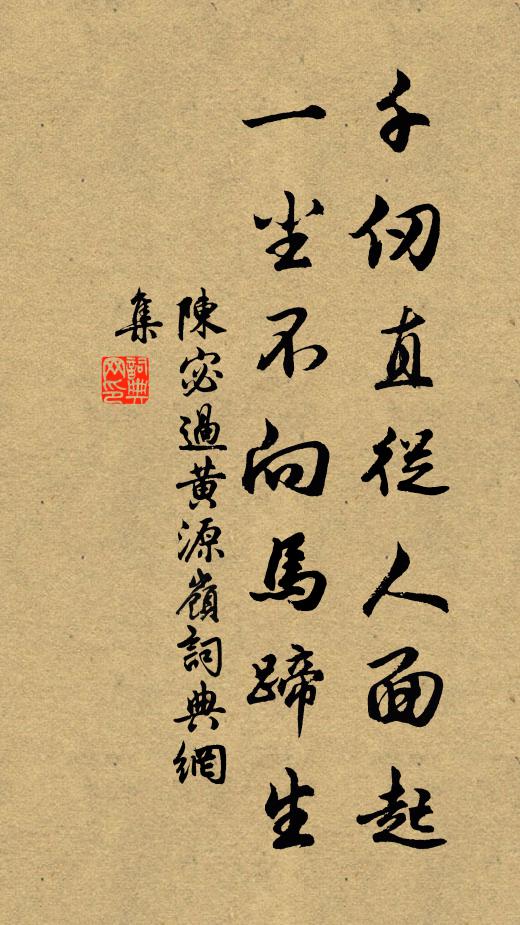 千仞直從人面起
一尘不向馬蹄生
陳宓過黄源嶺詞典網
集
詞典
网印